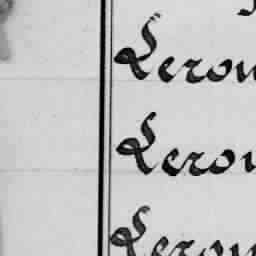 Lerou
Lerou
Lerou